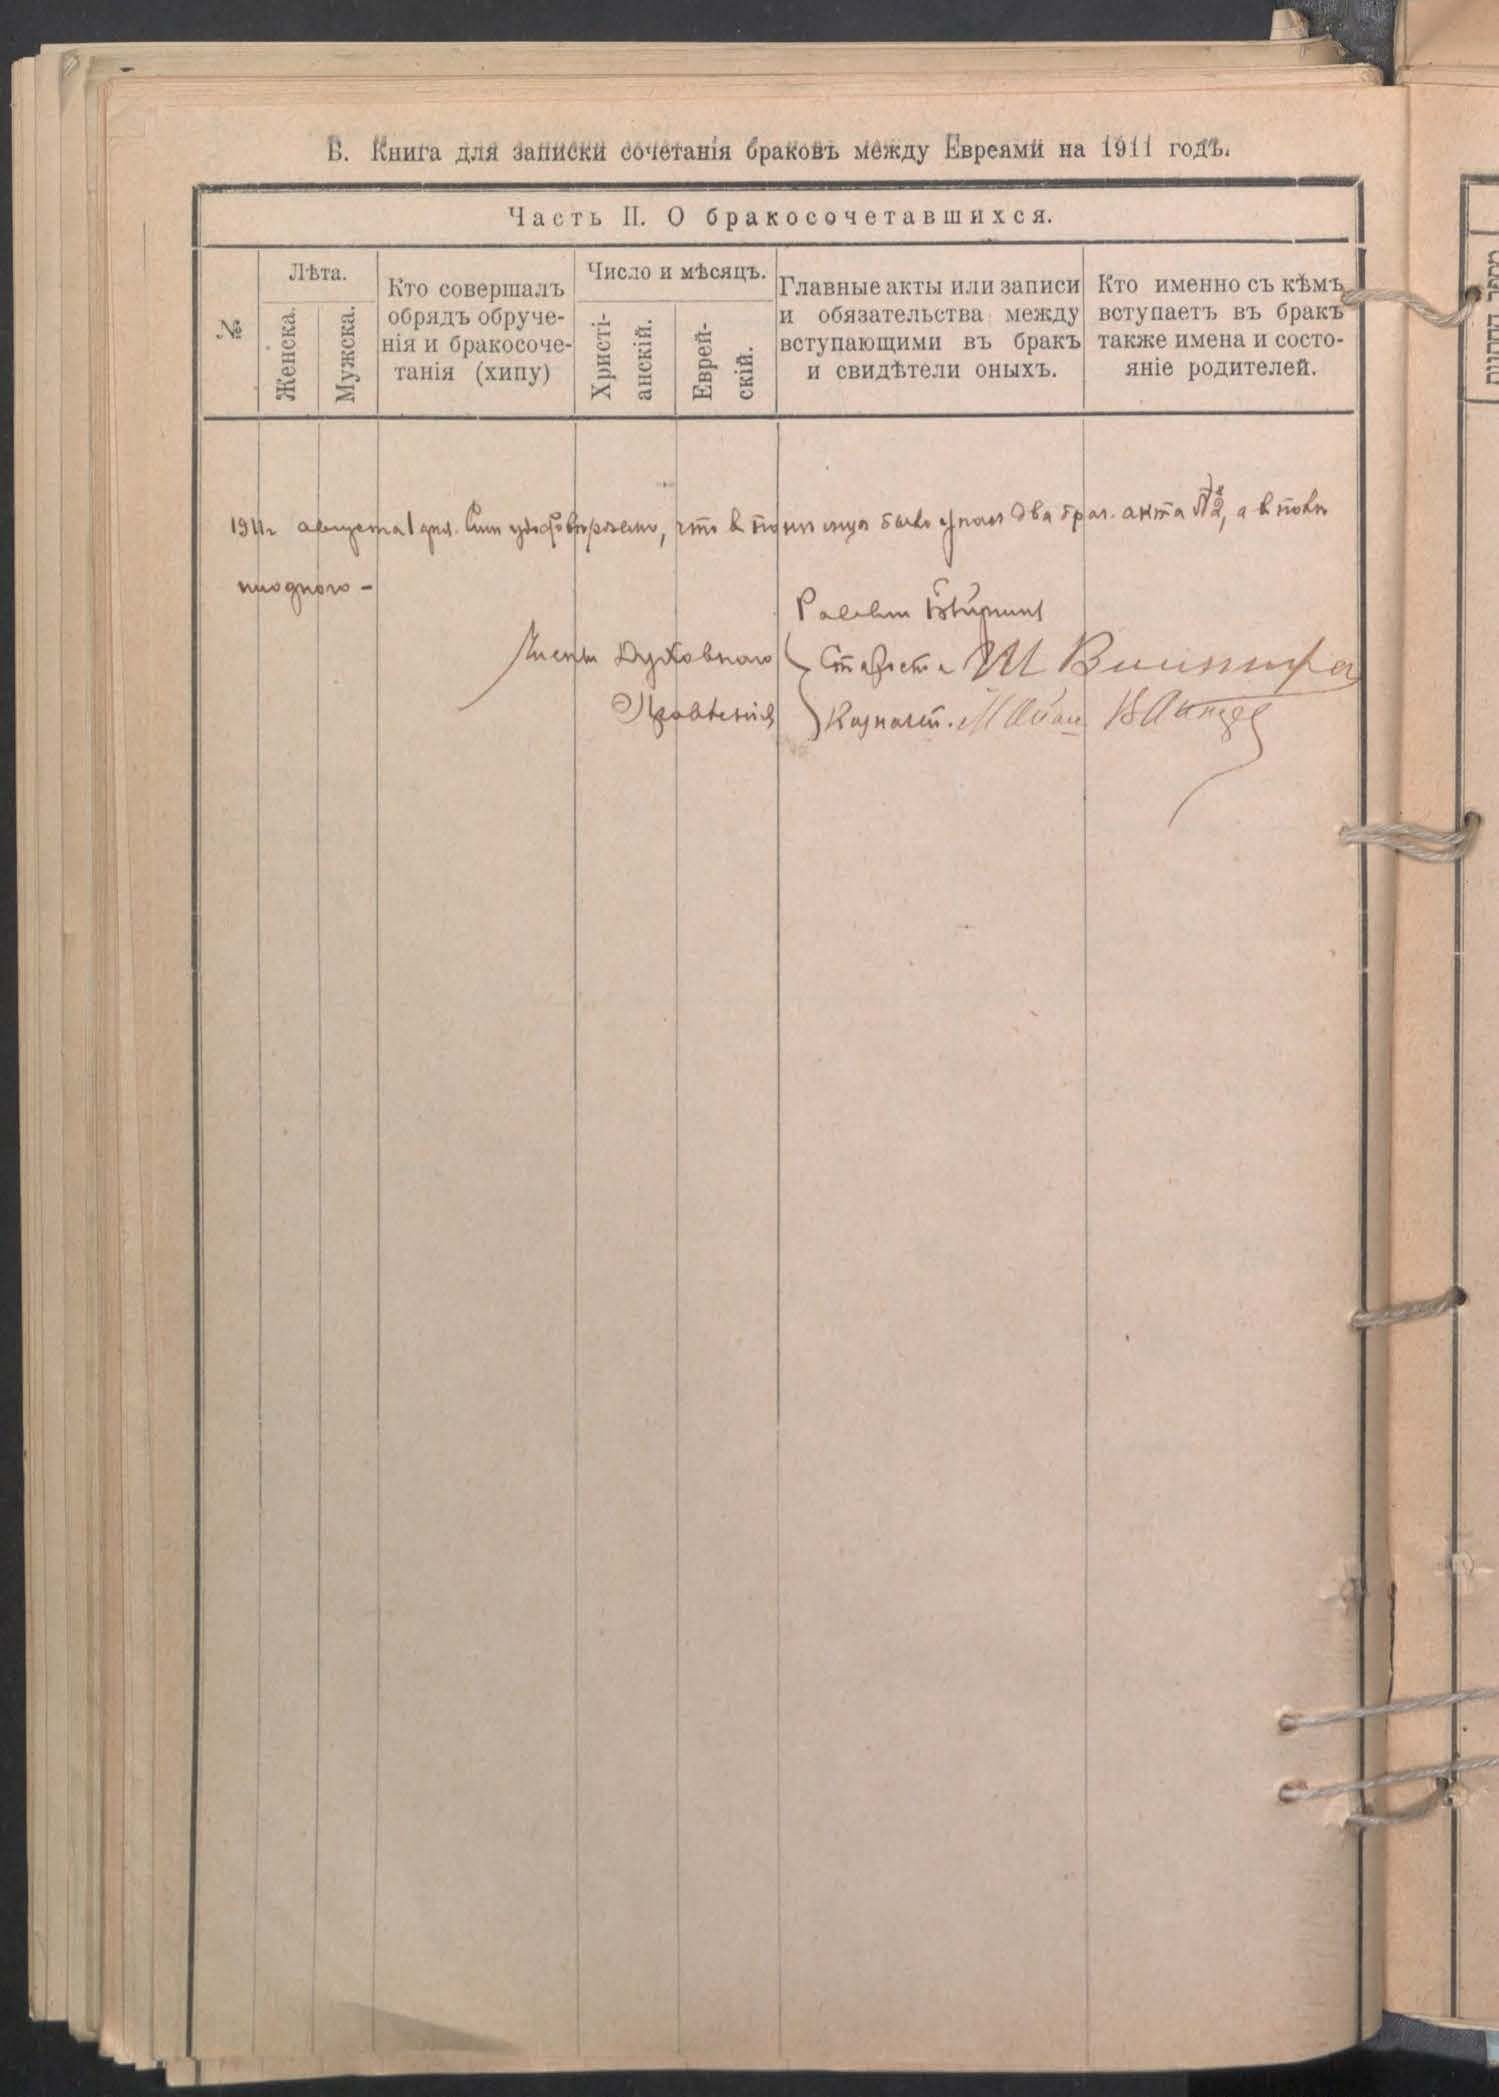 В. Книга для записки сочетанія браковъ между Евреями на 1911 годъ.
Часть II. О бракосочетавшихся.
№
Лѣта.
Женска.
Мужска.
Кто совершалъ
обрядъ обруче-
нія и бракосоче-
танія (хипу)
Число и мѣсяцъ.
Христі-
анскій.
Еврей-
скій.
Главные акты или записи
и обязательства между
вступающими въ бракъ
и свидѣтели оныхъ.
Кто именно съ кѣмъ
вступаетъ въ бракъ
также имена и состо-
яніе родителей.
1911 августа 1 дня. Сим удостовѣряемъ, что в было два брач. акта №2, а в
ни одного -
Раввин
Члены Духовного Староста Ш
Правленія Казначей.